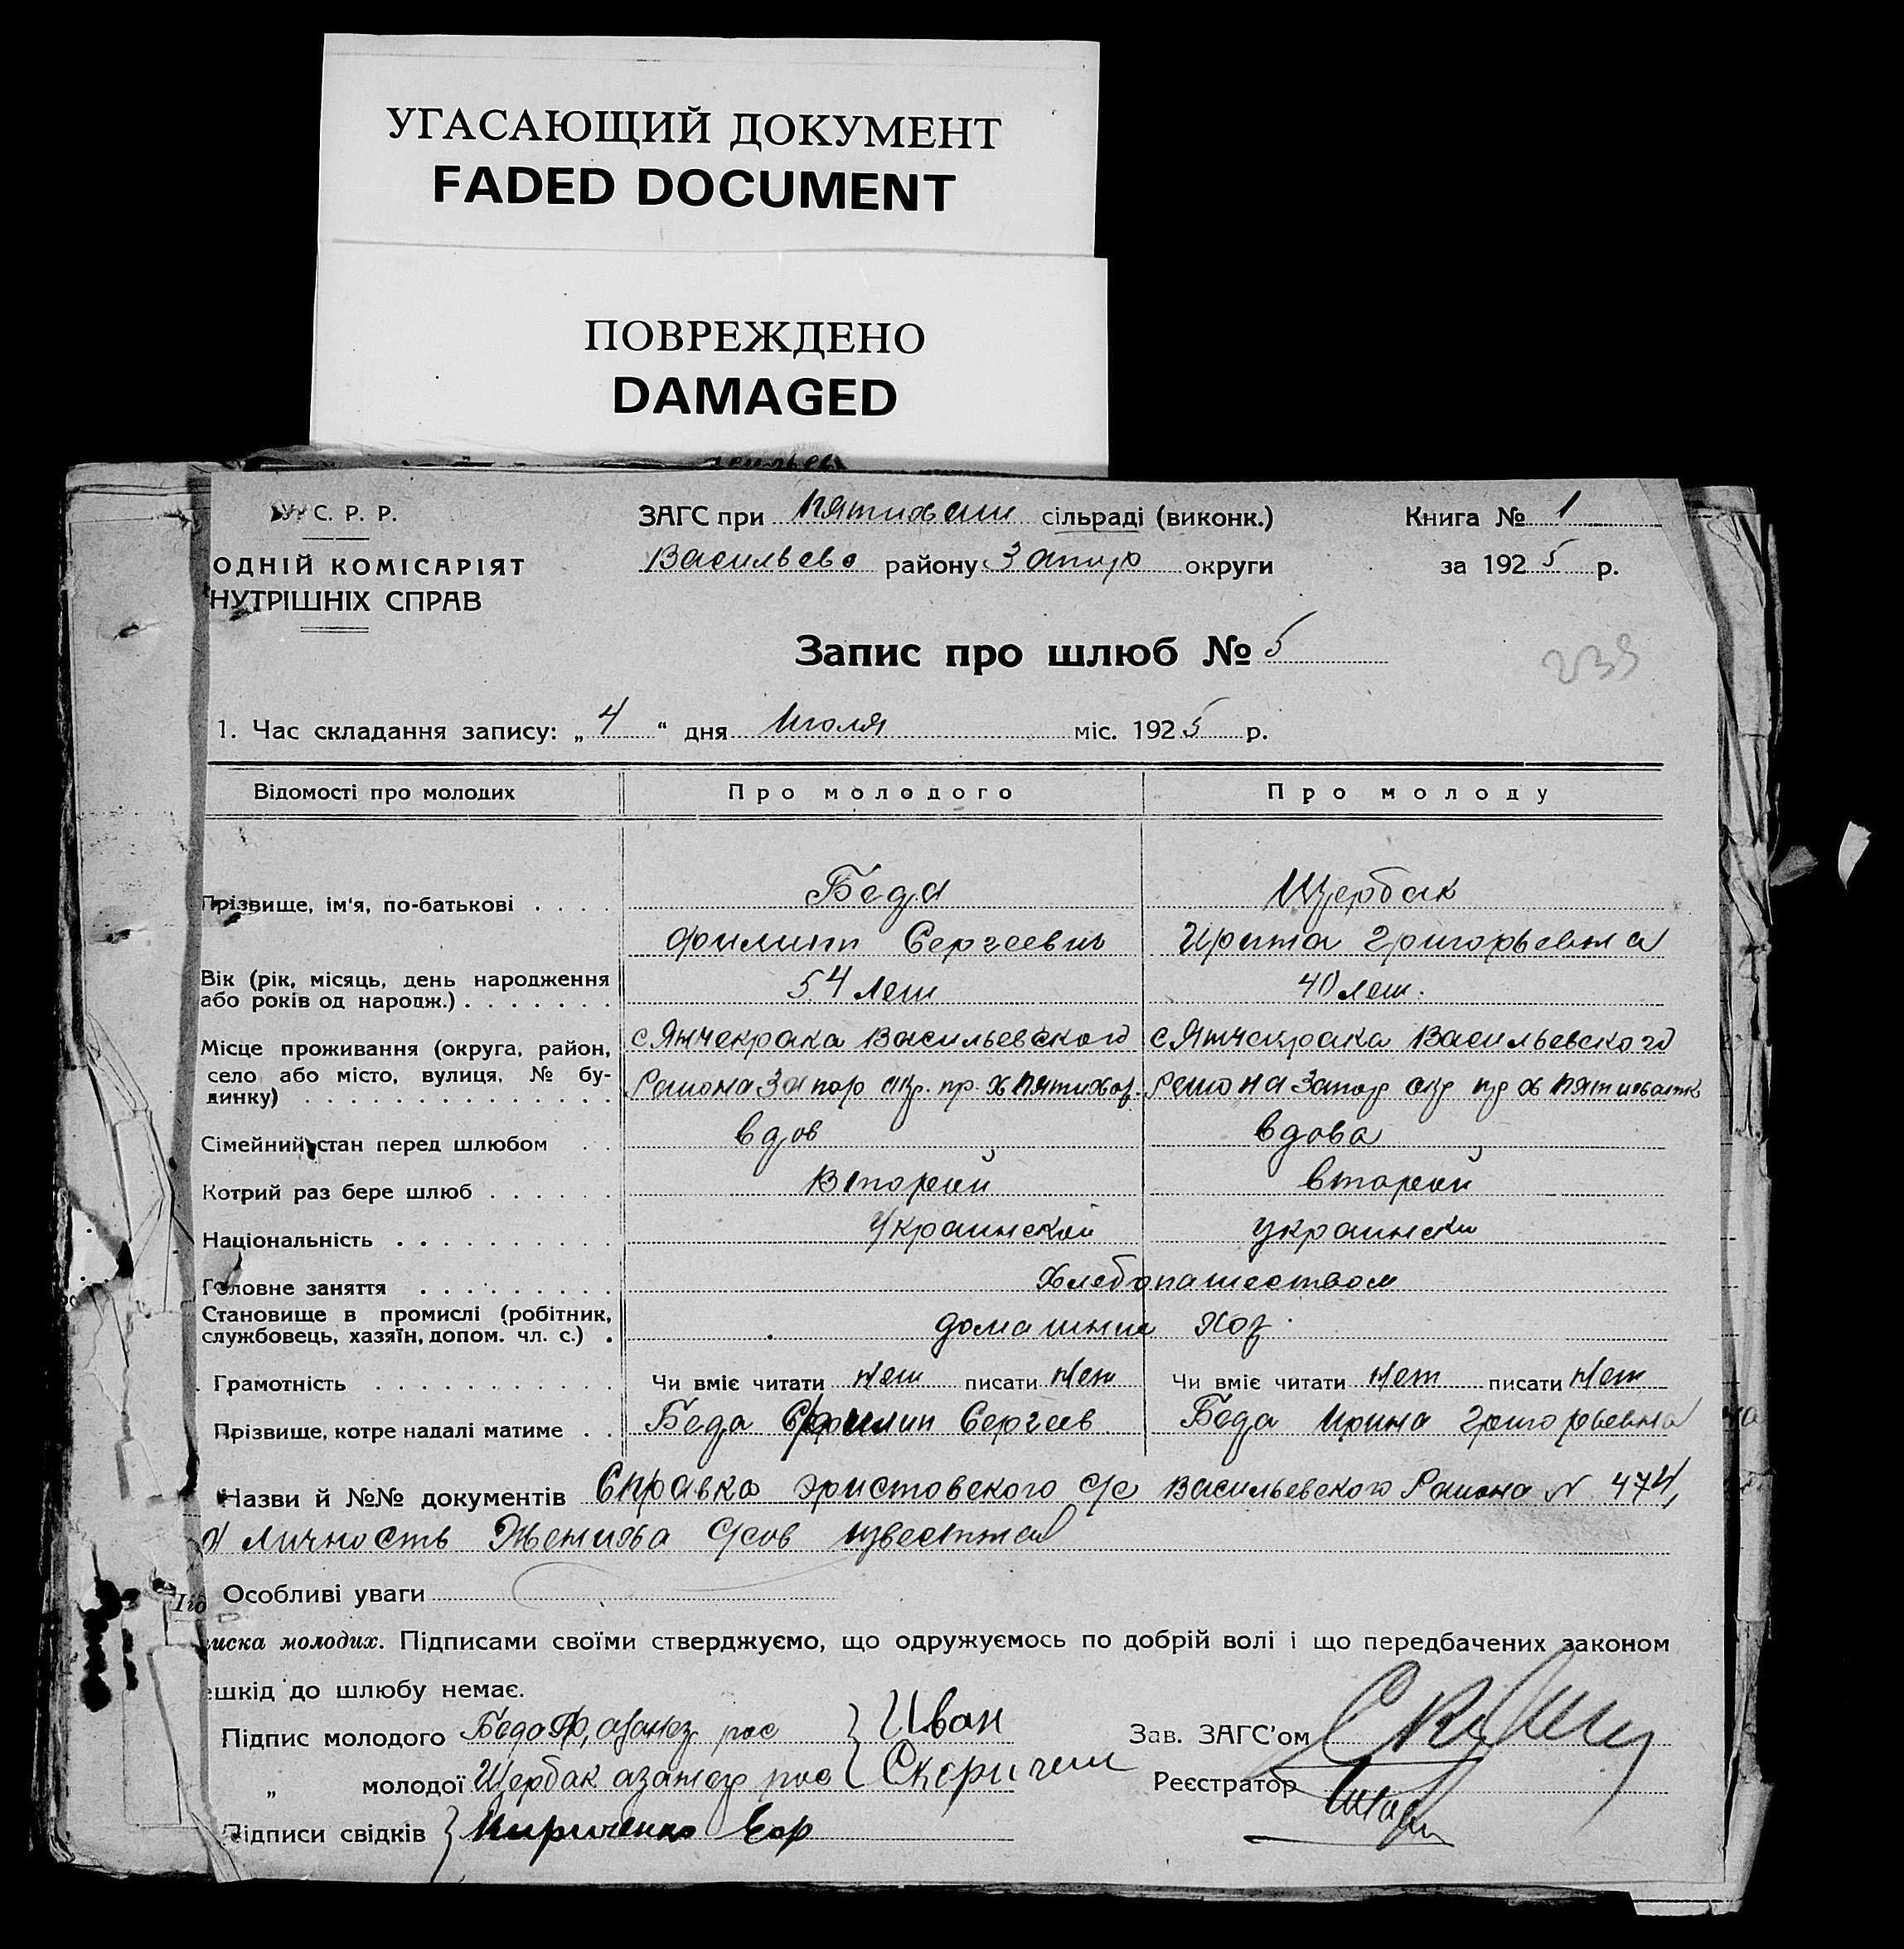 УГАСАЮЩИЙ ДОКУМЕНТ
FADED DOCUMENT
ПОВРЕЖДЕНО
DAMAGED
У. С. Р. Р.
ОДНІЙ КОМІСАРІЯТ
НУТРІШНІХ СПРАВ
ЗАГС при Пятихат сільраді (виконк.)
Васильево району Запор округи
Книга № 1
за 1925 р.
Запис про шлюб № 5
239
1. Час складання запису: „ 4 “ дня Июля міс. 1925 р.
Відомості про молодих Про молодого Про молоду
Прізвище, ім'я, по-батькові . . . . Беда Щербак
Филипп Сергеевич Ирина Григорьевна
Вік (рік, місяць, день народження
або років од народж.) . . . . . . . 54 лет 40 лет.
Місце проживання (округа, район,
село або місто, вулиця, № бу-
динку) . . . . . . . . . . . . . .
с Янчекрака Васильевского с Янчекрака Васильевского
Района Запор окр. пр. х Пятихат. Района Запор окр пр х Пятихатк
Сімейний стан перед шлюбом . . вдов вдова
Котрий раз бере шлюб . . . . . . Второй второй
Національність . . . . . . . . . . Украинской украинск
Головне заняття . . . . . . . . . Хлебопашеством
Становище в промислі (робітник,
службовець, хазяїн, допом. чл. с.) . домашним хоз.
Грамотність . . . . . . . . . . . Чи вміє читати нет писати нет Чи вміє читати нет писати нет
Прізвище, котре надалі матиме . . Беда Филип Сергеев Беда Ирина Григорьевна
Назви й №№ документів Справка Христовского с/с Васильевского Района № 474,
личность Жениха известна
Особливі уваги
иска молодих. Підписами своїми стверджуємо, що одружуємось по добрій волі і що передбачених законом
ешкід до шлюбу немає.
Підпис молодого Беда Ф, рос } Иван
„ молодої Щербак рос
Зав. ЗАГС'ом
Реєстратор
Підписи свідків } Кириченко Егор